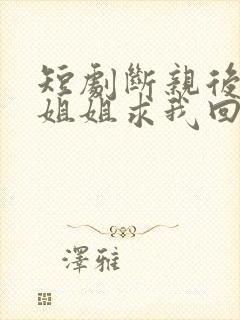 短劇斷親後
姐姐求我回
澤雅